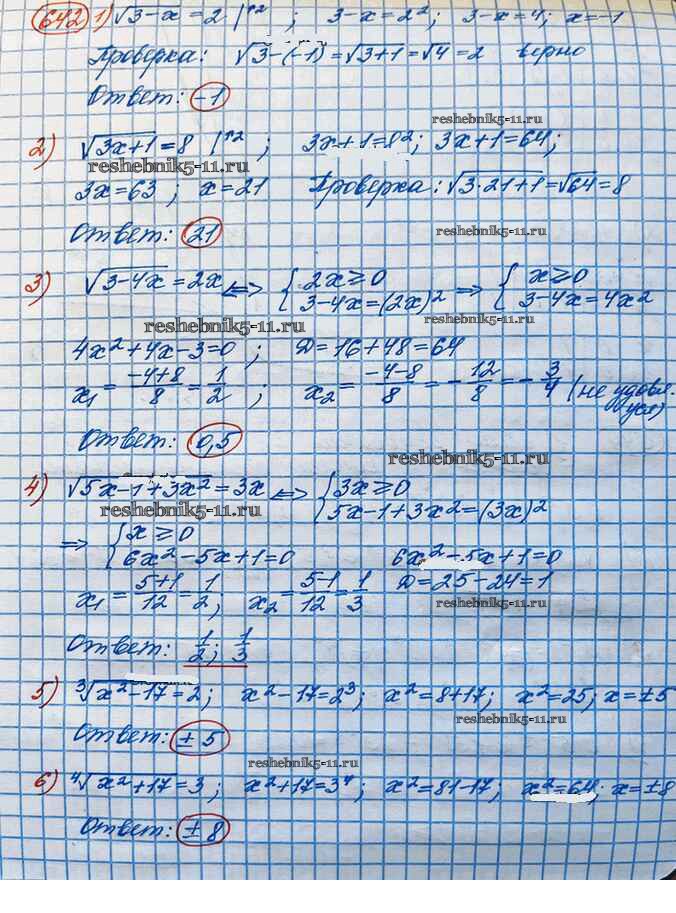 642 1) √3-x = 2 |↑2 ; 3-x=2²; 3-x=4; x=-1
Проверка: √3-(-1) = √3+1 = √4 = 2 верно
Ответ: -1
reshebnik5-11.ru
2) √3x+1 = 8 |↑2 ; 3x+1=8²; 3x+1=64;
reshebnik5-11.ru
3x=63 ; x=21 Проверка: √3·21+1 = √64 = 8
Ответ: 21
reshebnik5-11.ru
3) √3-4x = 2x ⇔ { 2x≥0 ⇒ { x≥0
3-4x=(2x)² 3-4x=4x²
reshebnik5-11.ru reshebnik5-11.ru
4x²+4x-3=0 ; D=16+48=64
x₁ = -4+8/8 = 1/2 ; x₂ = -4-8/8 = -12/8 = -3/4 (не удовл. усл)
Ответ: 0,5
reshebnik5-11.ru
4) √5x-1+3x² = 3x ⇔ { 3x≥0
5x-1+3x²=(3x)²
reshebnik5-11.ru
⇒ { x≥0
6x²-5x+1=0 6x²-5x+1=0
x₁ = 5+1/12 = 1/2 ; x₂ = 5-1/12 = 1/3 D=25-24=1
reshebnik5-11.ru
Ответ: 1/2; 1/3
5) ³√x²-17 = 2; x²-17=2³; x²=8+17; x²=25; x=±5
reshebnik5-11.ru
Ответ: ±5
reshebnik5-11.ru
6) ⁴√x²+17 = 3; x²+17=3⁴; x²=81-17; x²=64; x=±8
Ответ: ±8
reshebnik5-11.ru